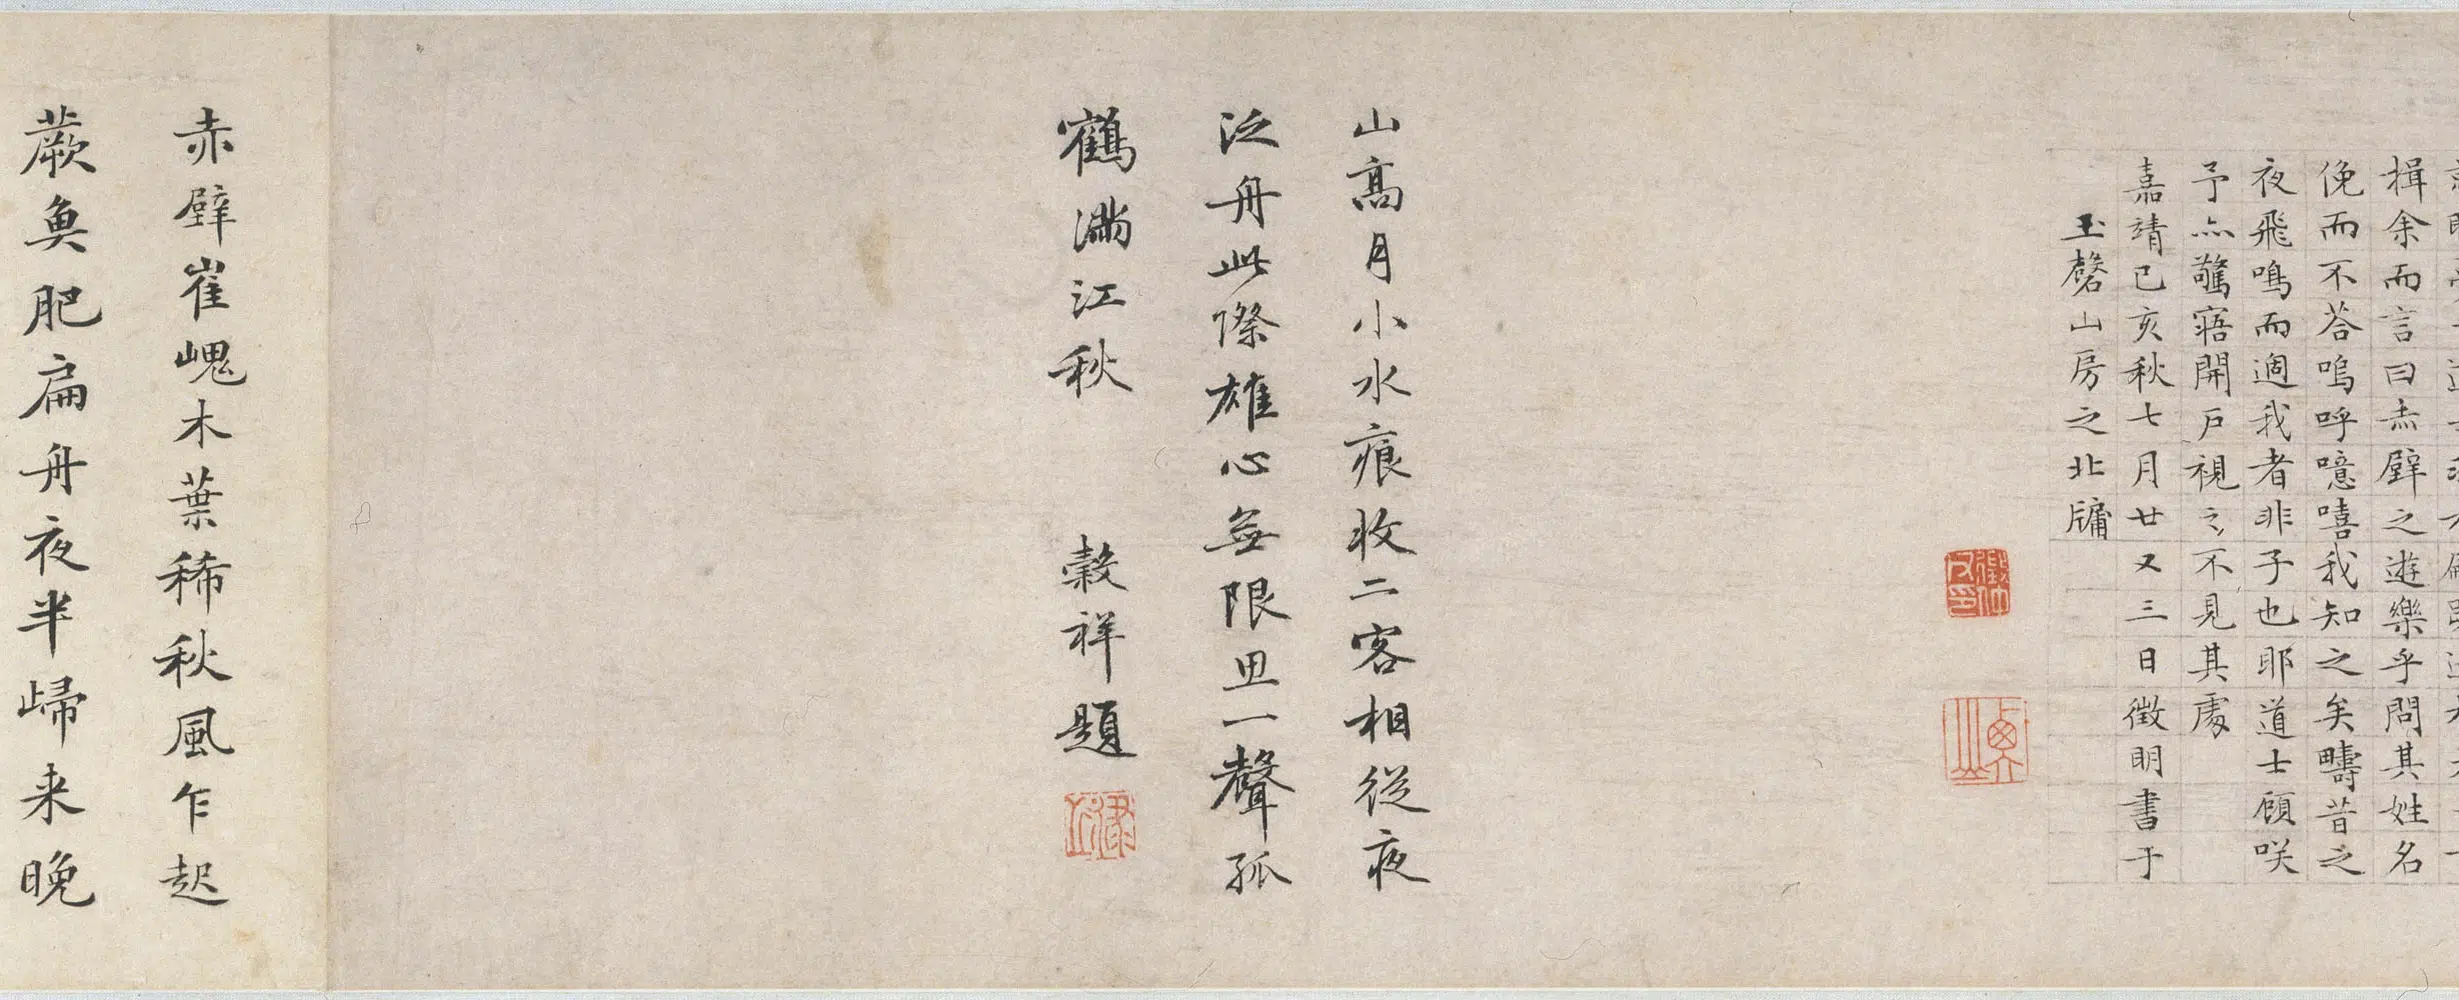 揖余而言曰赤壁之遊樂乎問其姓名
俛而不荅嗚呼噫嘻我知之矣疇昔之
夜飛鳴而過我者非子也耶道士顧咲
予亦驚寤開戶視之不見其處
嘉靖己亥秋七月廿又三日徵明書于
玉磬山房之北牖
山高月小水痕收二客相從夜
泛舟此際雄心無限思一聲孤
鶴滿江秋 穀祥題
赤壁崔嵬木葉稀秋風乍起
蕨魚肥扁舟夜半歸来晚